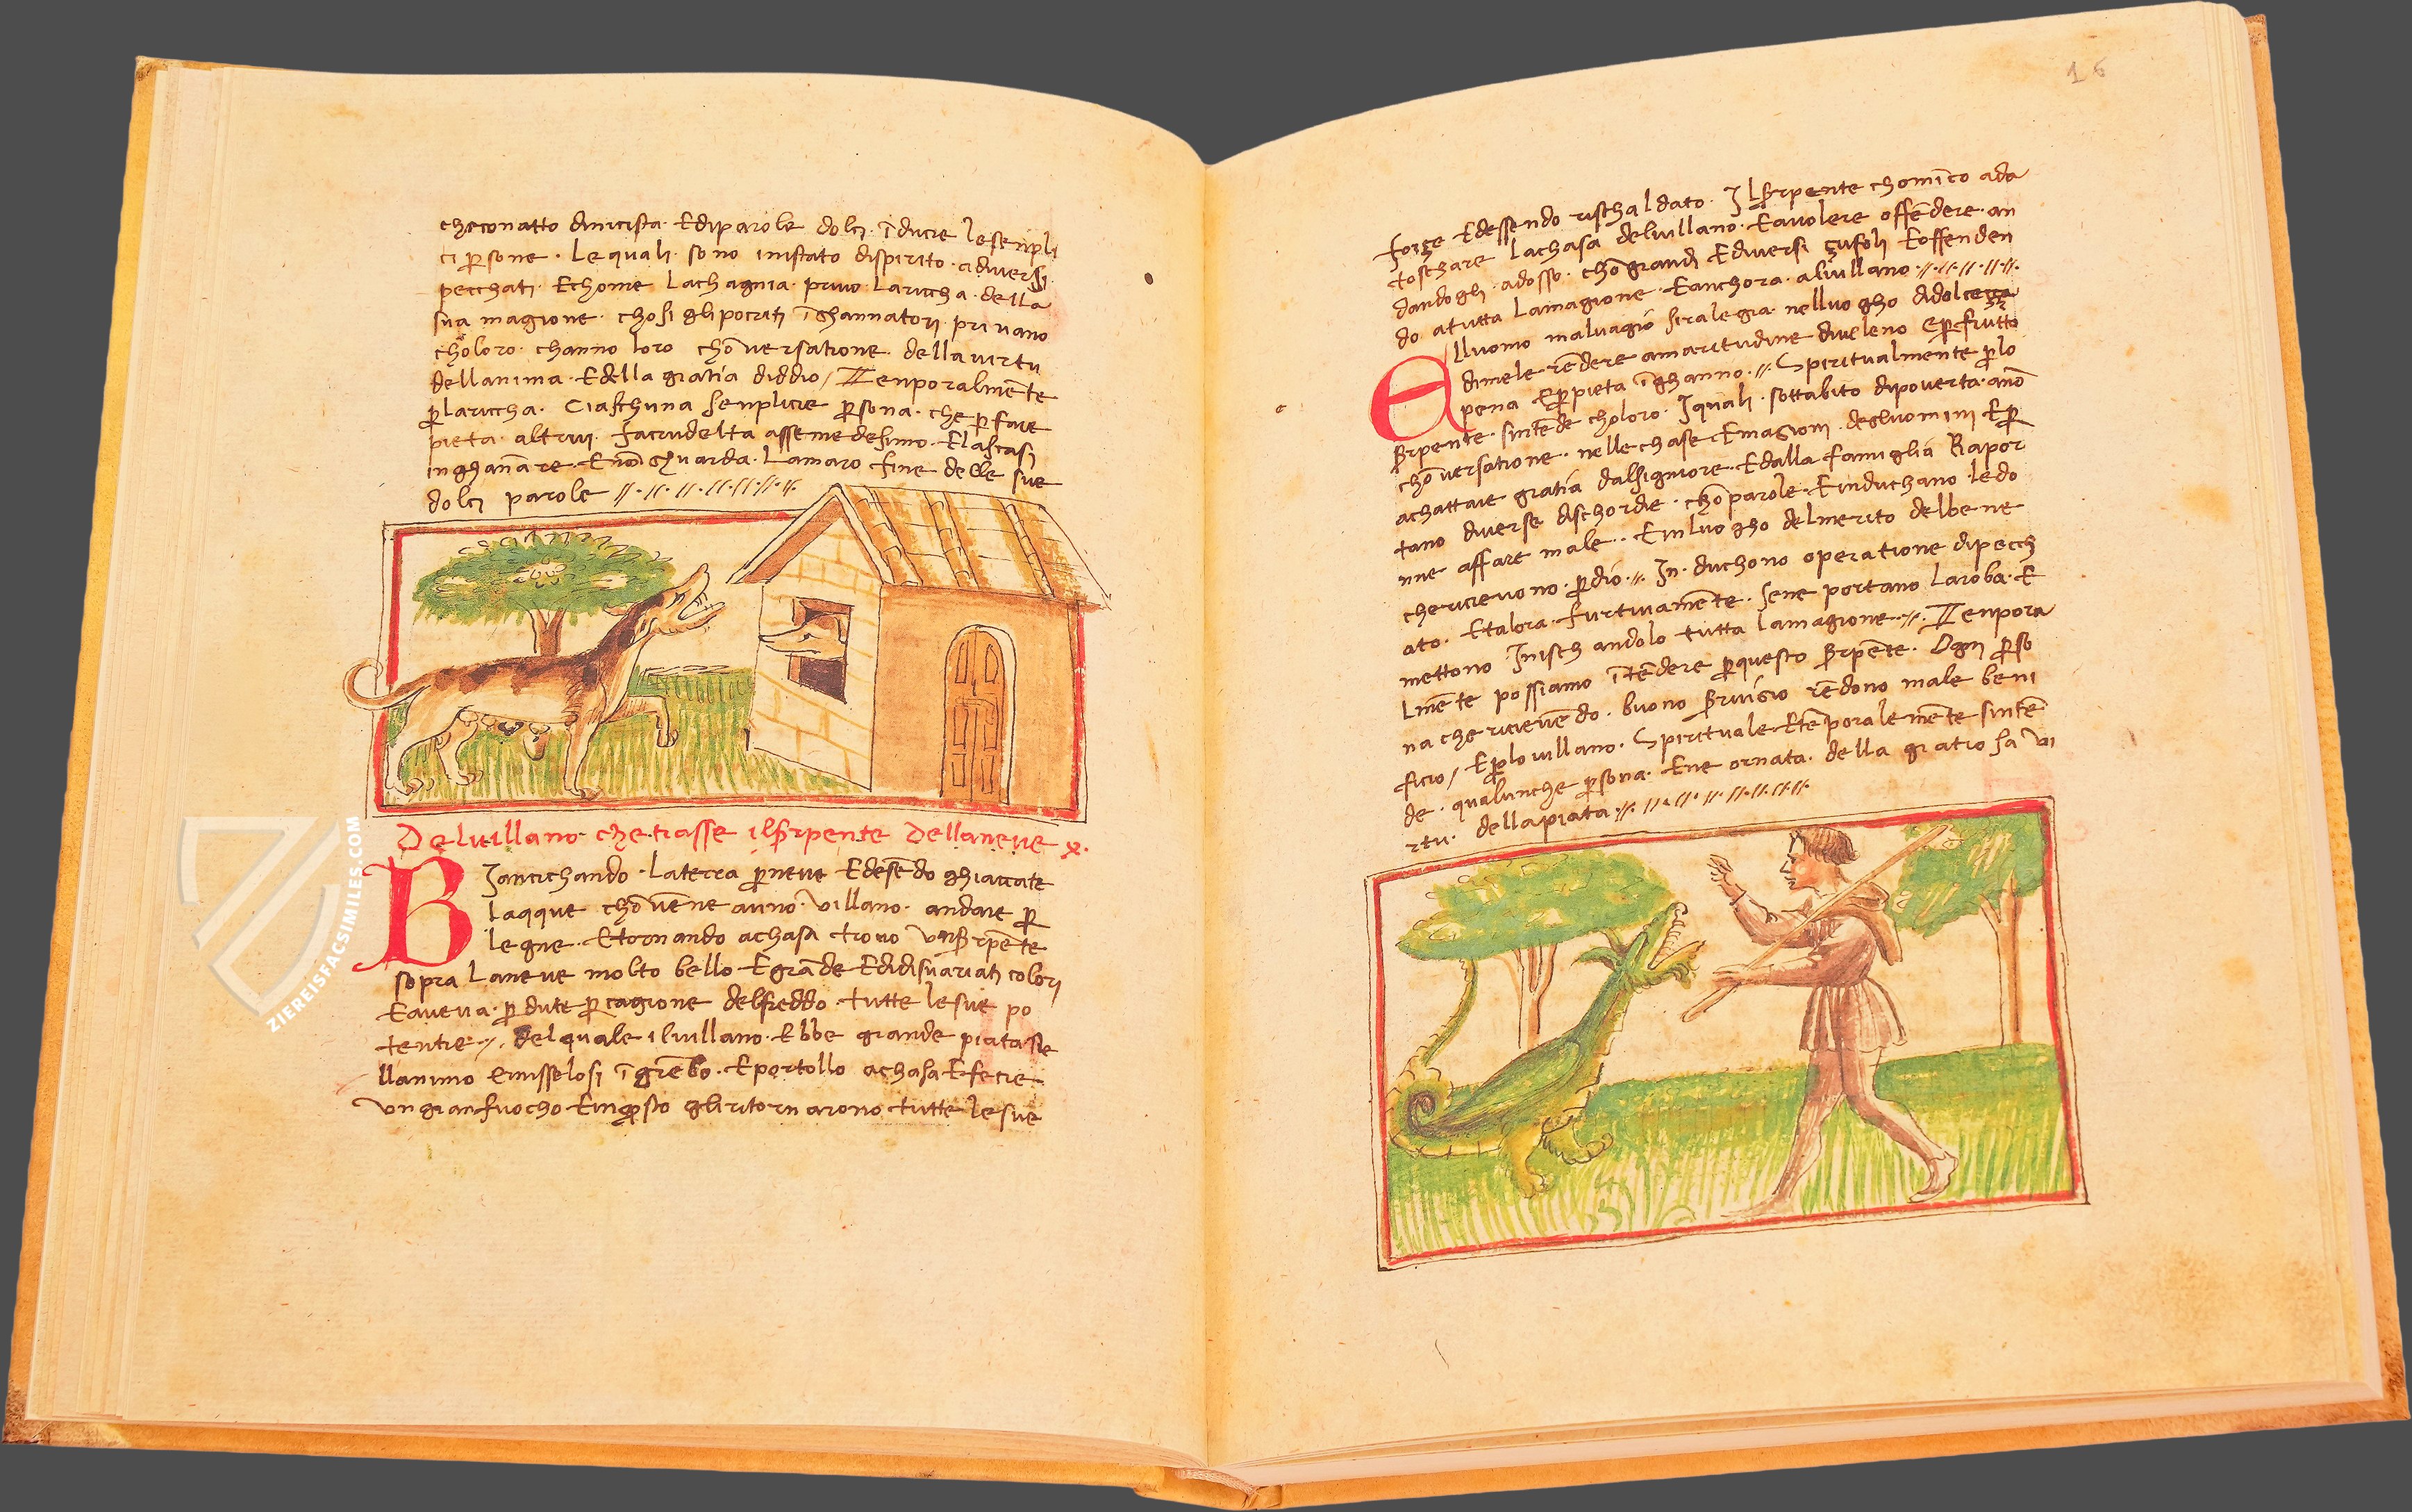 checonatto dinicista · Ediparole dolci · īducie lesenpli
ci ꝑsone · Lequali · sono inistato dispirito · adiversi
pecchati · Echome Lachagnia · privo · Lariccha · della
sua magione · chosi glipocriti īghannatori privano
choloro · channo loro chōversatione · dellavirtu
dellanima · Edella gratia diddio / Tenporalmēte
ꝑlariccha · Ciaschuna senplicie ꝑsona · che ꝑ faie
pieta · altrui · facrudelta assemedesimo · Elascasi
inghanare · Enō sguarda · Lamaro fine delle sue
dolci parole
Deluillano · che · trasse ilserpente dellaneue x ·
BJancichando · Laterra ꝑneue Edesēdo ghiaccate
laqque chōuēne aunō · villano · andare ꝑ
legne · Etornando achasa trouo vnserpēte
sopra Laneue molto bello Egrāde Edidisuariati colori
Eaueua · ꝑdute ꝑcagione delfreddo · tutte lesue po
tentie · delquale iluillano · Ebbe grande piata sie
llanimo Emisselosi īgrēbo · Eportollo achasa Efecie
vngranfuocho Einqꝑsto gliritornarono tutte lesue
16
forze Edessendo rischaldato · Jlserpente chomīco ada
toschare lachasa deluillano · Eauolere offēdere · an
dandogli · adosso · chōgrandi Ediuersi zufoli Eoffenden
do atutta Lamagione · Eanchora · aluillano
Elluomo maluagio siralegra · nelluogho didolcezza
dimele rēdere amaritudine diueleno Eꝑfrutto
pena Eꝑpieta īghanno · Spiritualmente ꝑlo
serpente · sintēde choloro · Jquali · sottabito dipouerta · anō
chōuersatione · nelle chase Emagioni · degliuomini Eꝑ
achattare gratia dalsigniore · Edalla famiglia Rapor
tano diuerse dischordie · chōparole · Einduchano ledo
nne affare male · Einluogho delmerito delbene
chericieuono · ꝑdio · In · duchono operatione dipecch
ato · Etalora · furtiuamēte · sene portano Laroba · E
mettono Jnischandolo tutta lamagione · Tenpora
lmēte possiamo ītēdere ꝑquesto serpēte · Ogni ꝑso
na che ricieuēdo · buono seruigio rēdono male beni
ficio / Eꝑlouillano · Spirituale Etēporalemēte sintē
de · qualunche ꝑsona · Ene ornata · della gratiosa vi
rtu · dellapiata
ZIEREISFACSIMILES.COM